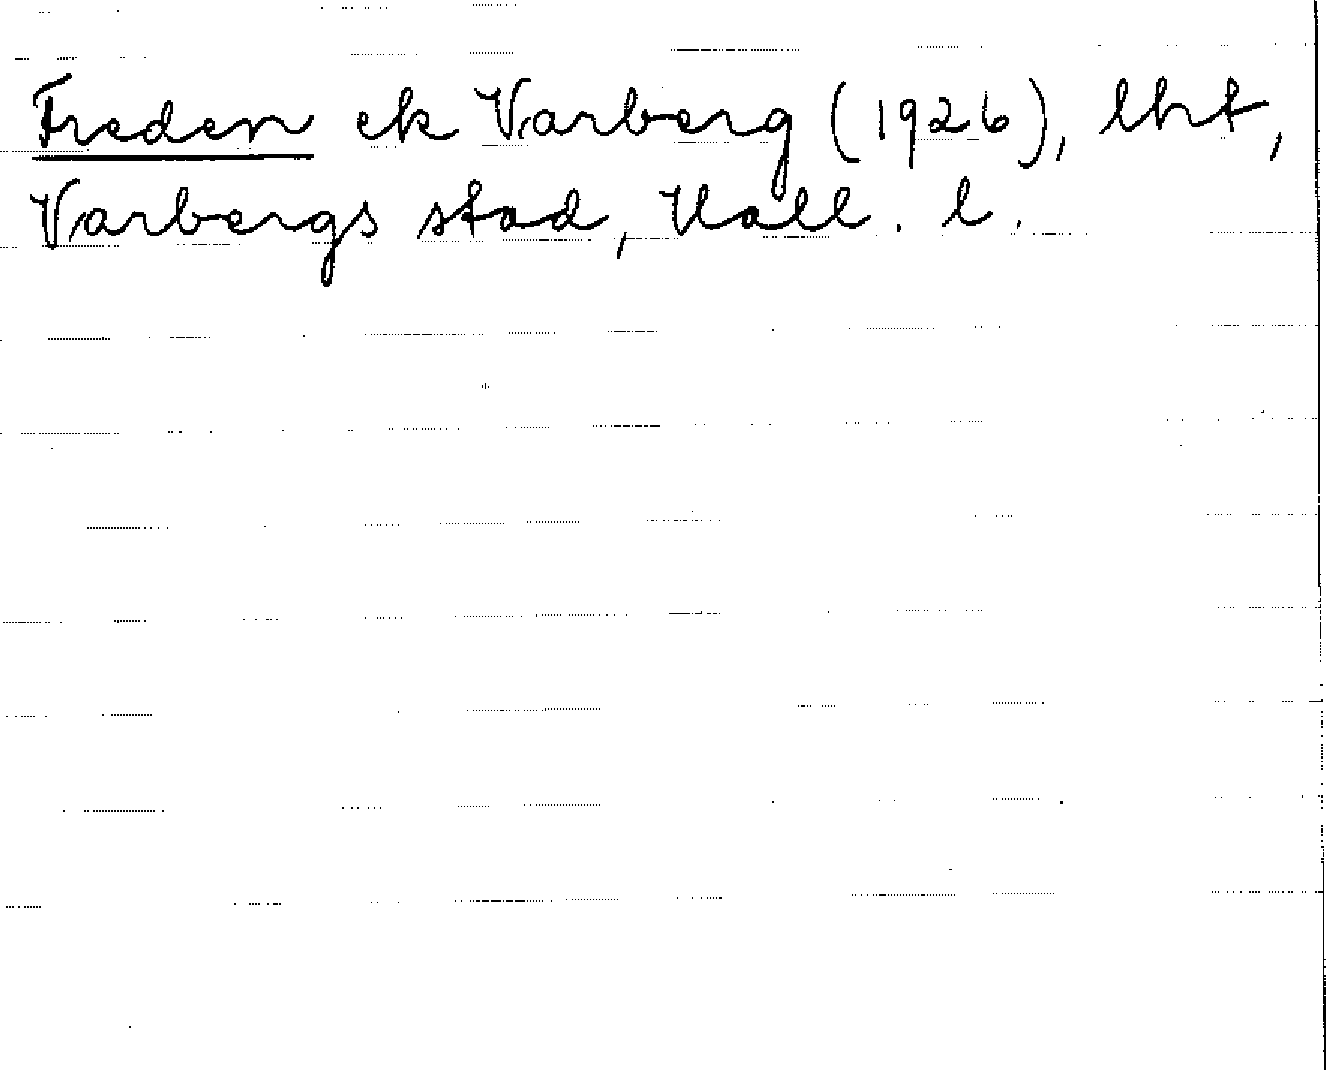 Freden ek Varberg (1926), lht,
Varbergs stad, Hall. l.